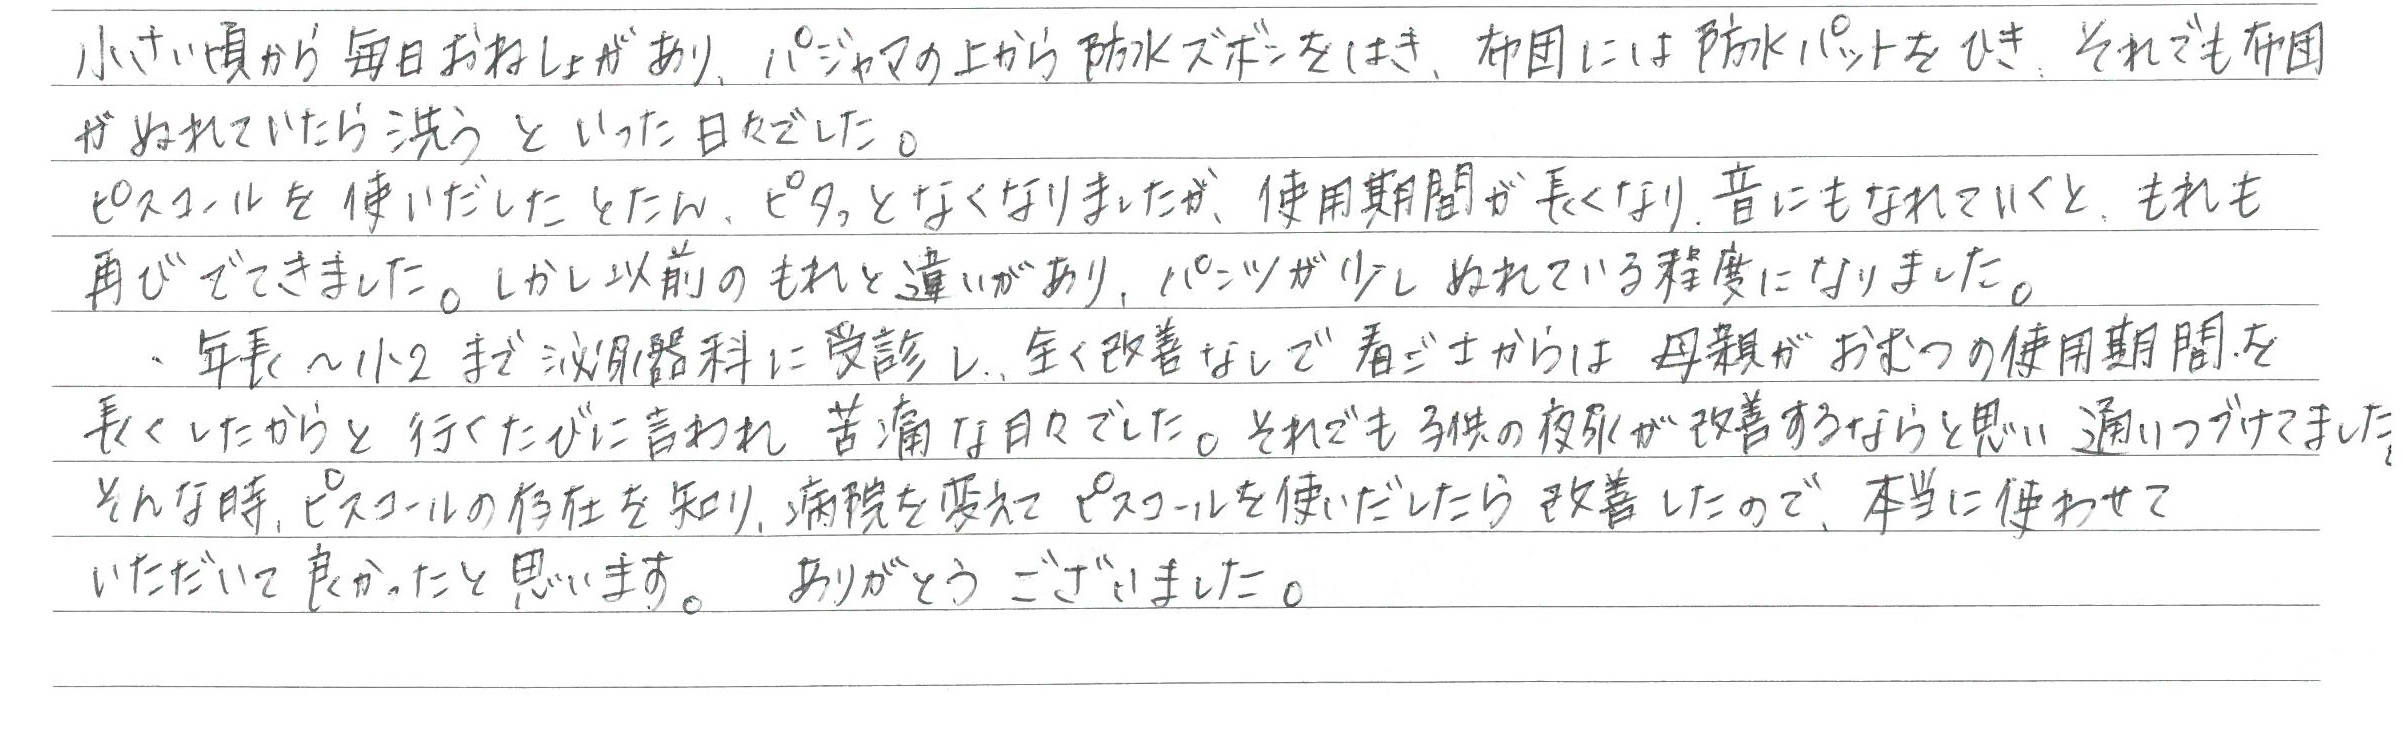 小さい頃から毎日おねしょがあり、パジャマの上から防水ズボンをはき、布団には防水パットをひき、それでも布団
がぬれていたら洗うといった日々でした。
ピスコールを使いだしたとたん、ピタッとなくなりましたが、使用期間が長くなり、音にもなれていくと、もれも
再びでてきました。しかし以前のもれと違いがあり、パンツが少しぬれている程度になりました。
・年長〜小2まで泌尿器科に受診し、全く改善なしで看ご士からは母親がおむつの使用期間を
長くしたからと行くたびに言われ苦痛な日々でした。それでも子供の夜尿が改善するならと思い通いつづけてました。
そんな時、ピスコールの存在を知り、病院を変えてピスコールを使いだしたら改善したので、本当に使わせて
いただいて良かったと思います。 ありがとうございました。